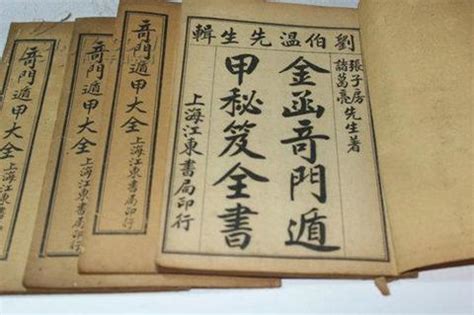 劉伯溫先生輯
張子房
諸葛亮
先生著
金函竒門遁
甲秘笈全書
上海江東書局印行
竒門遁甲大全
上海江東書局印行
竒門遁甲大全
上海江東書局印行
竒門遁甲大全